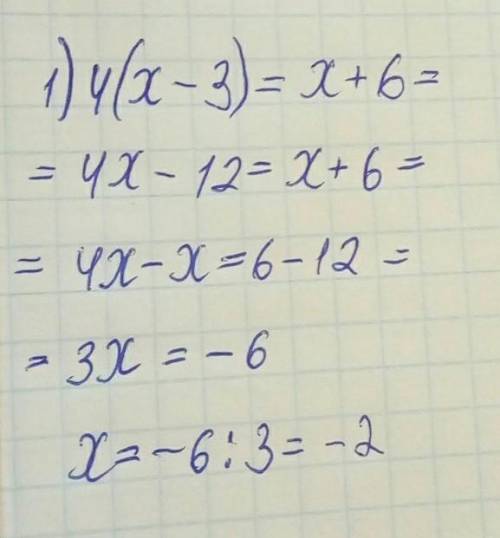 1) 4(x - 3) = x + 6 =
= 4x - 12 = x + 6 =
= 4x - x = 6 - 12 =
= 3x = - 6
x = - 6 : 3 = - 2